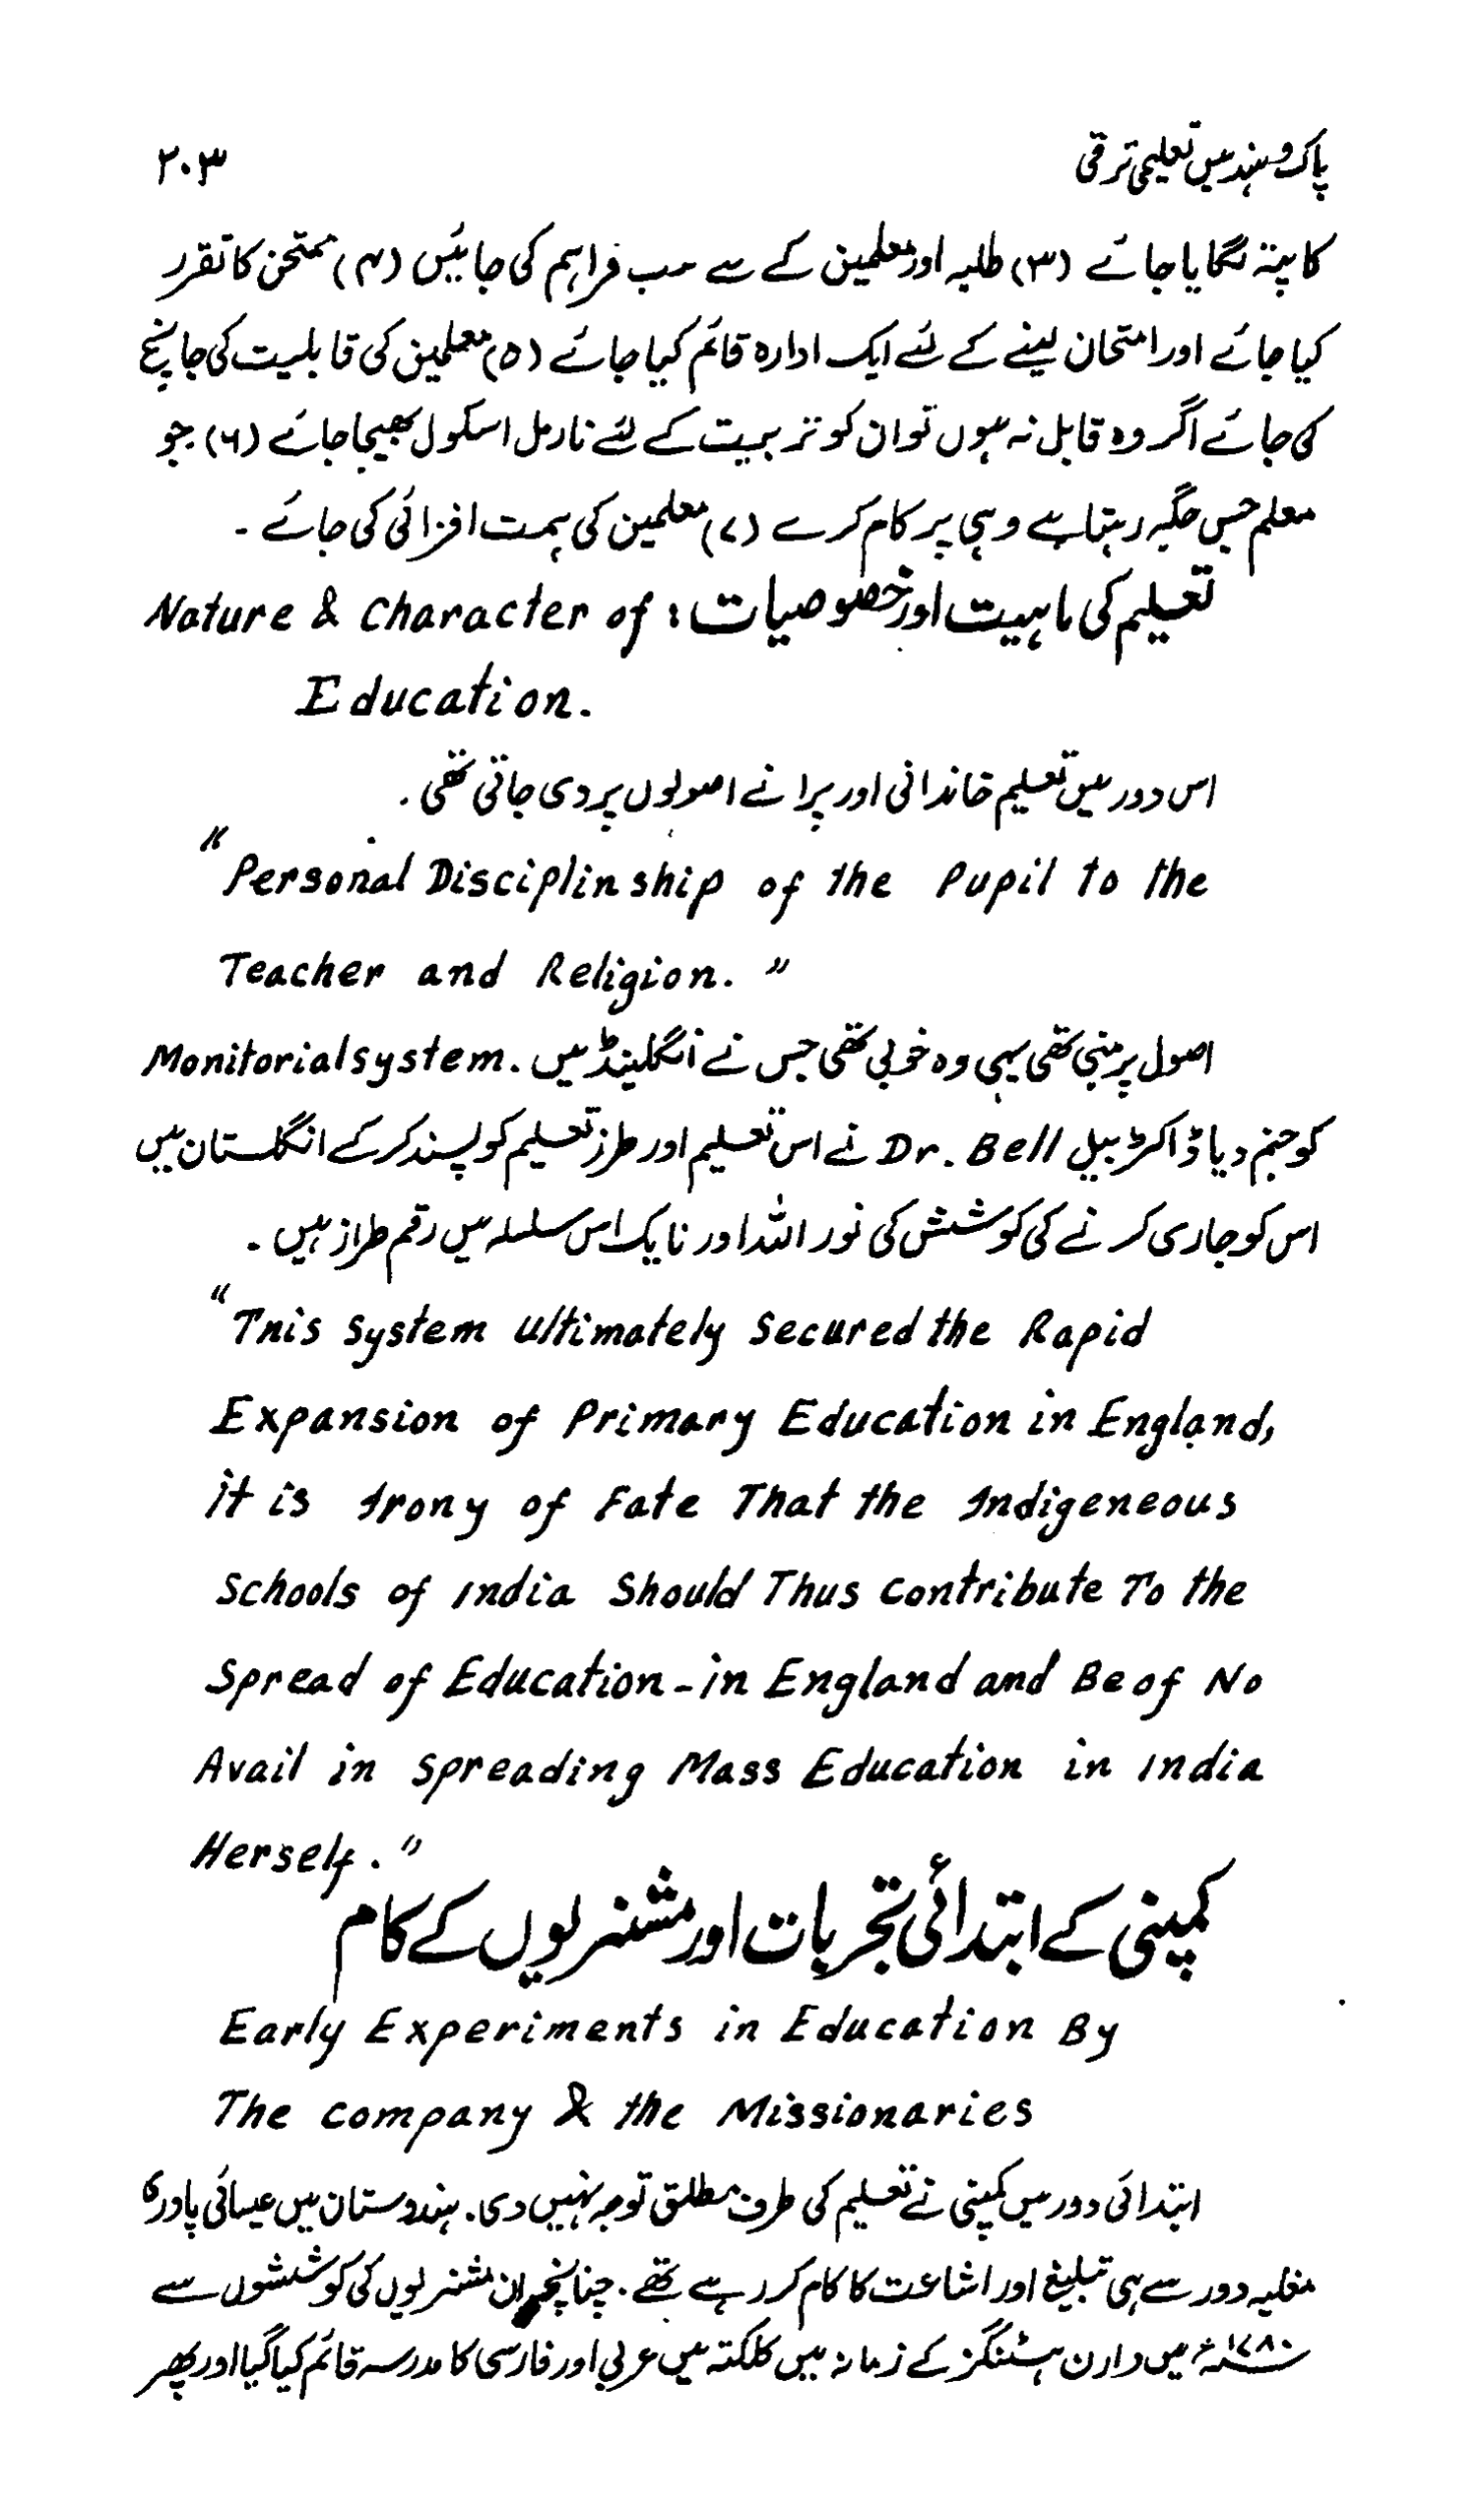 پاک و ہند میں تعلیمی ترقی ۲۰۳
کا پتہ لگایا جائے (۳) طلبہ اور معلمین کے سے سب فراہم کی جائیں (۴) ممتحن کا تقرر
کیا جائے اور امتحان لینے کے لئے ایک ادارہ قائم کیا جائے (۵) معلمین کی قابلیت کی جانچ
کی جائے اگر وہ قابل نہ ہوں تو ان کو تربیت کے لئے نارمل اسکول بھیجا جائے (۶) جو
معلم جس جگہ رہتا ہے وہی پر کام کرے (۷) معلمین کی ہمت افزائی کی جائے ۔
تعلیم کی ماہیت اور خصوصیات : Nature & Character of
Education.
اس دور میں تعلیم خاندانی اور پرانے اصولوں پر دی جاتی تھی ۔
"Personal Disciplinship of the Pupil to the
Teacher and Religion."
اصول پر مبنی تھی یہی وہ خوبی تھی جس نے انگلینڈ میں Monitorial system.
کو جنم دیا ڈاکٹر بیل Dr. Bell نے اس تعلیم اور طرز تعلیم کو پسند کر کے انگلستان میں
اس کو جاری کرنے کی کوشش کی نور اللہ اور نایک اس سلسلہ میں رقم طراز ہیں ۔
"Tnis System Ultimately Secured the Rapid
Expansion of Primary Education in England,
it is Irony of Fate That the Indigeneous
Schools of India Should Thus Contribute To the
Spread of Education-in England and Be of No
Avail in Spreading Mass Education in India
Herself."
کمپنی کے ابتدائی تجربات اور مشنریوں کے کام
Early Experiments in Education By
The Company & the Missionaries
ابتدائی دور میں کمپنی نے تعلیم کی طرف مطلق توجہ نہیں دی۔ ہندوستان میں عیسائی پادری
مغلیہ دور سے ہی تبلیغ اور اشاعت کا کام کر رہے تھے۔ چنانچہ ان مشنریوں کی کوششوں سے
۱۷۸۰ء میں وارن ہسٹنگز کے زمانہ میں کلکتہ میں عربی اور فارسی کا مدرسہ قائم کیا گیا اور پھر